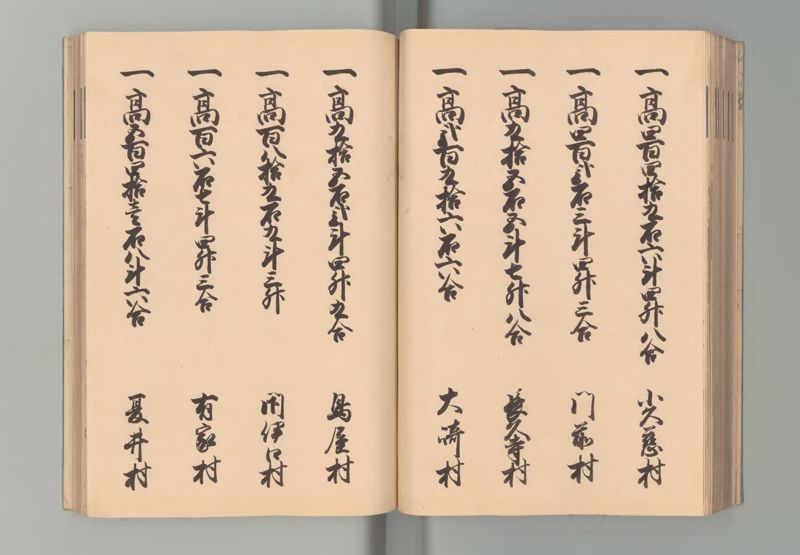 一高四百四拾九石六斗四升八合 小久慈村
一高四百弐石三斗四升三合 門前村
一高九拾五石五斗七升八合 長久寺村
一高弐百九拾六石六合 大崎村
一高九拾五石弐斗四升九合 鳥屋村
一高百八拾九石九斗三升 閉伊口村
一高百六石七斗四升三合 有家村
一高五百四拾壱石八斗六合 夏井村